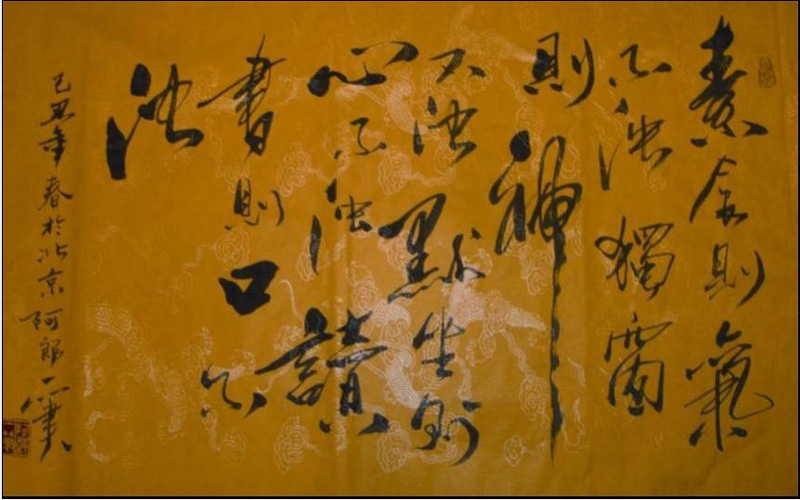 素食則氣
不浊獨宿
則神
不浊默坐則
心不浊讀
書則口不
浊
己丑年春於北京阿郎